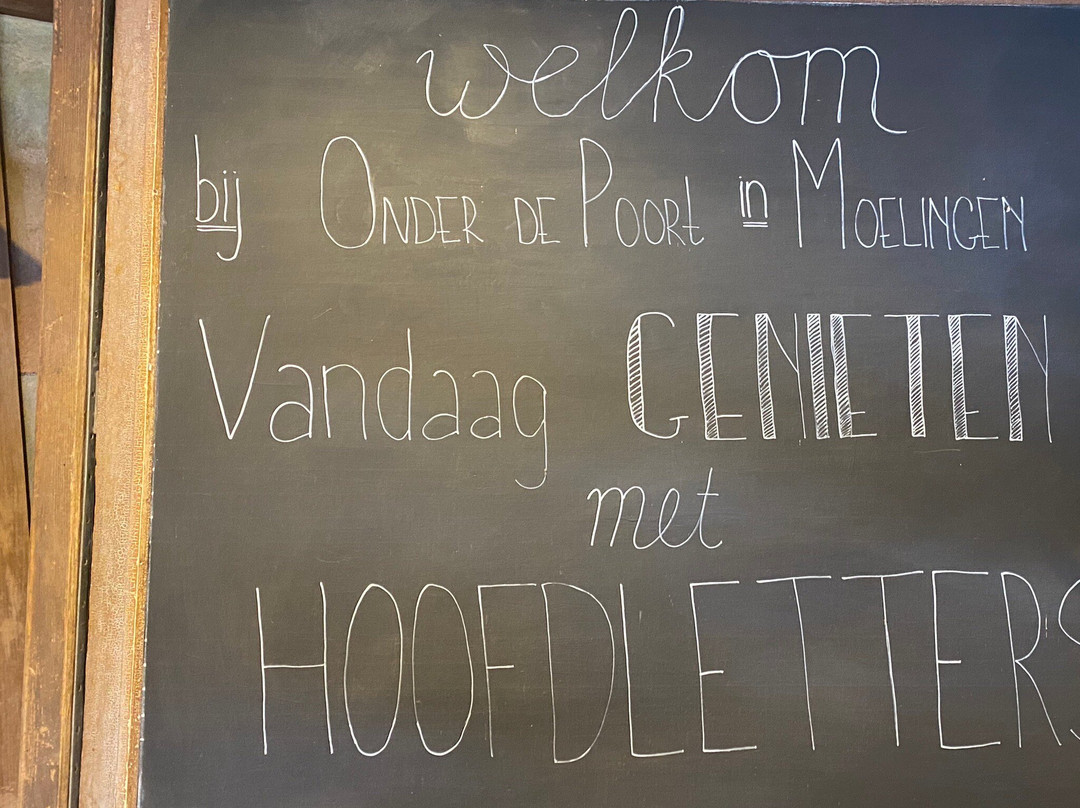 welkom
bij ONDER DE POORt in MOELINGEN
Vandaag GENIETEN
met
HOOFDLETTERS